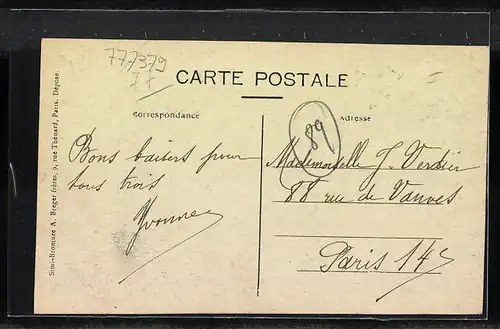 777379
77
CARTE POSTALE
Correspondance
Adresse
89
Bons baisers pour
tous trois
Yvonne
Mademoiselle J. Verdier
88 rue de Vanves
Paris 14e
Simi-Bromure A. Breger frères, 9, rue Thénard, Paris. Déposé.
5